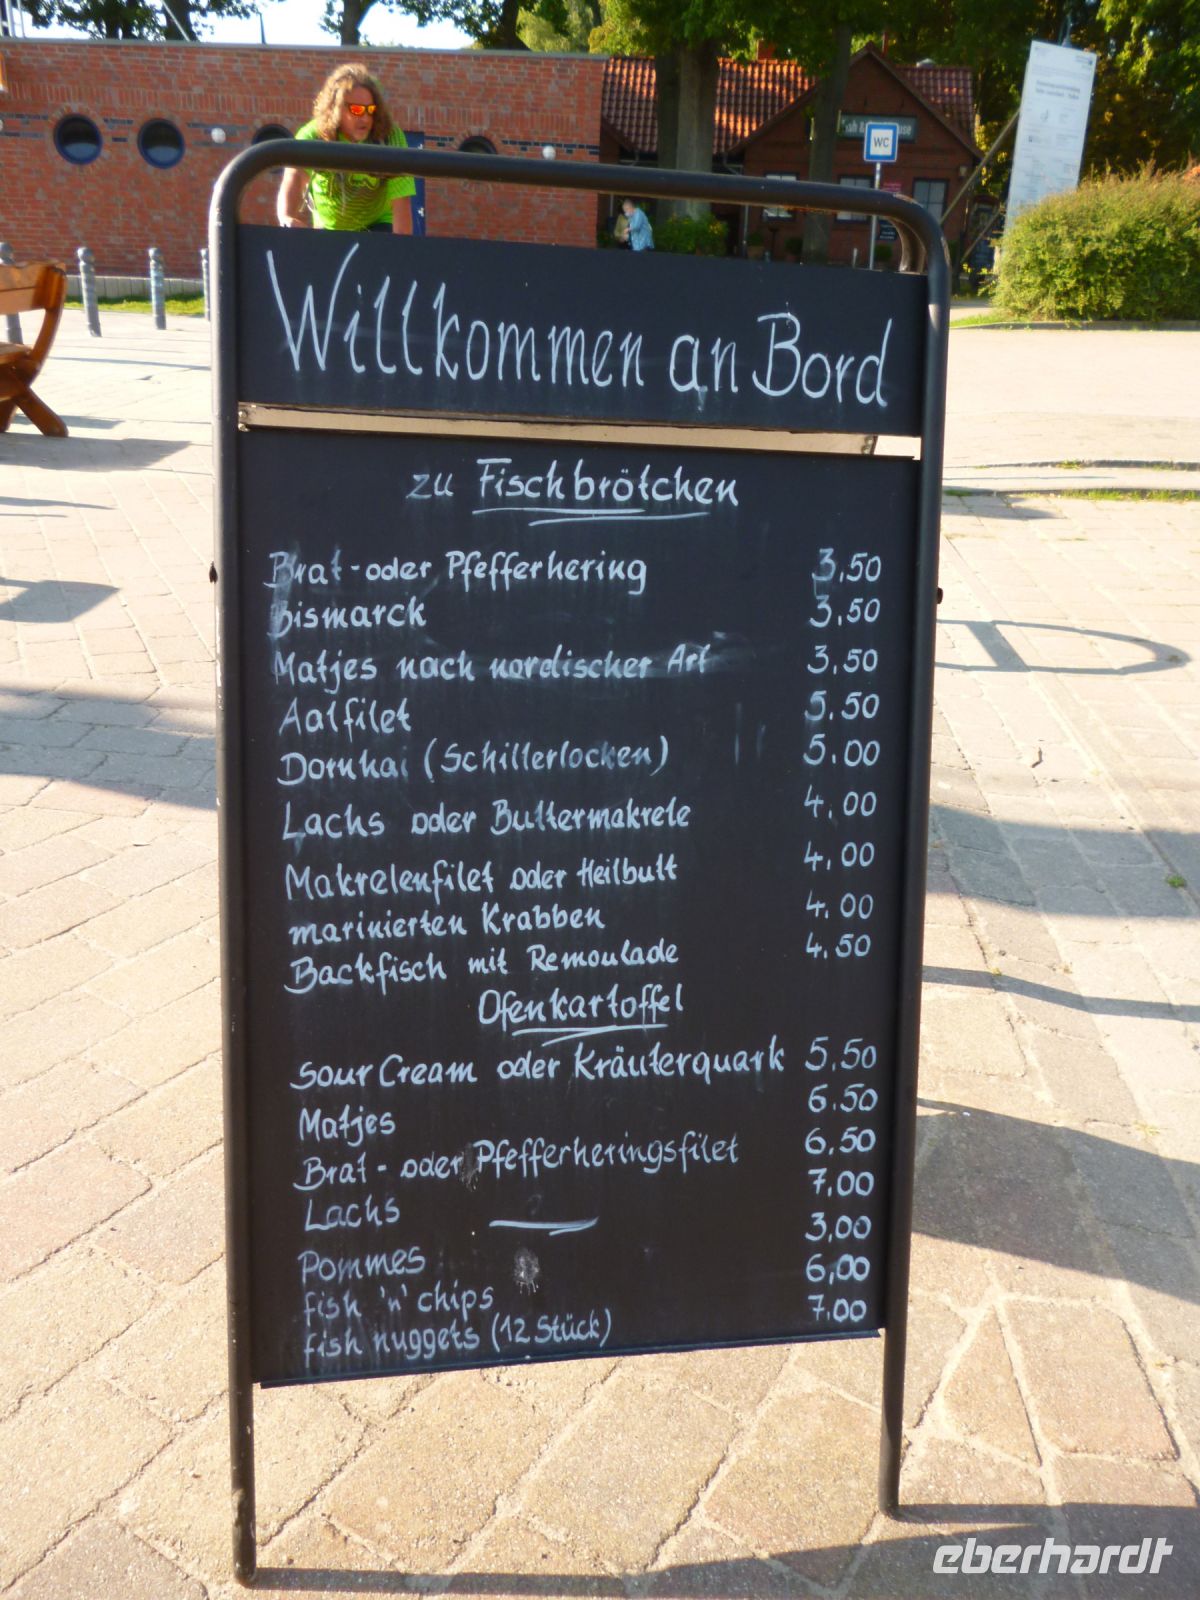 WC
Willkommen an Bord
zu Fischbrötchen
Brat-oder Pfefferhering 3.50
Bismarck 3.50
Matjes nach nordischer Art 3.50
Aalfilet 5.50
Dornhai (Schillerlocken) 5.00
Lachs oder Buttermakrele 4.00
Makrelenfilet oder Heilbutt 4.00
marinierten Krabben 4.00
Backfisch mit Remoulade 4.50
Ofenkartoffel
Sour Cream oder Kräuterquark 5.50
Matjes 6.50
Brat- oder Pfefferheringsfilet 6.50
Lachs 7.00
Pommes 3,00
fish 'n' chips 6,00
fish nuggets (12 Stück) 7.00
eberhardt